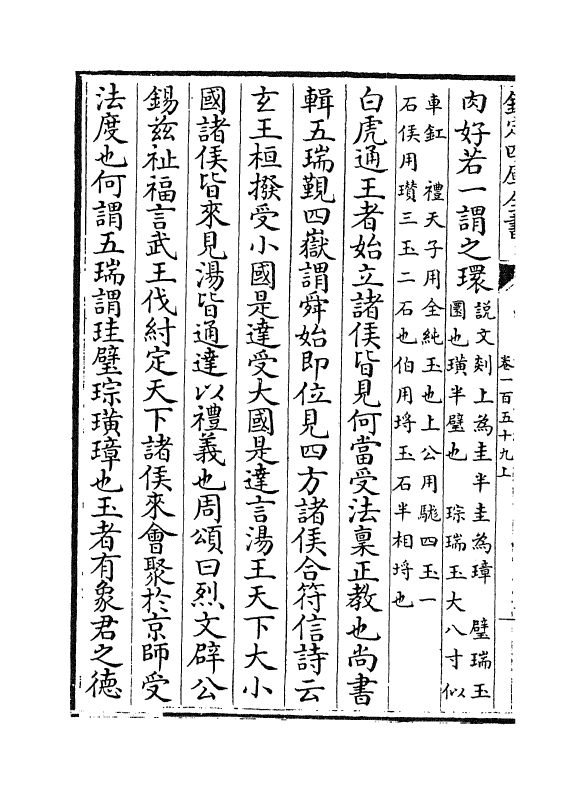 欽定四庫全書
卷一百五十九上
肉好若一謂之環
說文剡上為圭半圭為璋　璧瑞玉
圜也璜半璧也　琮瑞玉大八寸似
車釭　禮天子用全純玉也上公用駹四玉一
石侯用瓚三玉二石也伯用埒玉石半相埒也
白虎通王者始立諸侯皆見何當受法稟正教也尚書
輯五瑞覲四嶽謂舜始即位見四方諸侯合符信詩云
玄王桓撥受小國是達受大國是達言湯王天下大小
國諸侯皆來見湯皆通達以禮義也周頌曰烈文辟公
錫兹祉福言武王伐紂定天下諸侯來會聚於京師受
法度也何謂五瑞謂珪璧琮璜璋也玉者有象君之德